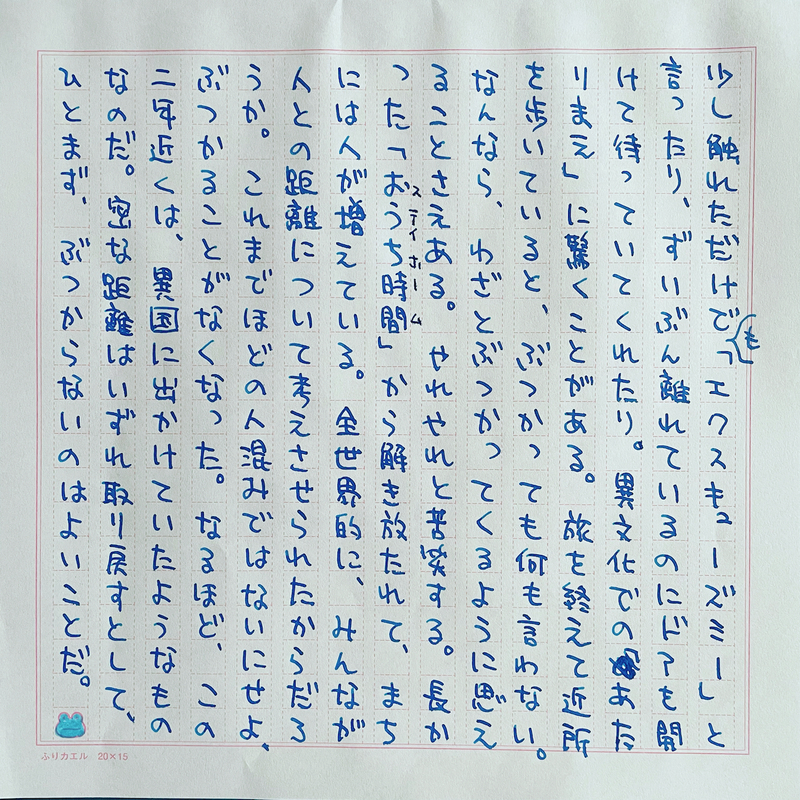 少し触れただけでも「エクスキューズミー」と
言ったり、ずいぶん離れているのにドアを開
けて待っていてくれたり。異文化でのあた
りまえ」に驚くことがある。旅を終えて近所
を歩いていると、ぶつかっても何も言わない。
なんなら、わざとぶつかってくるように思え
ることさえある。やれやれと苦笑する。長か
った「おうち時間」から解き放たれて、まち
ステイホーム
には人が増えている。全世界的に、みんなが
人との距離について考えさせられたからだろ
うか。これまでほどの人混みではないにせよ、
ぶつかることがなくなった。なるほど、この
二年近くは、異国に出かけていたようなもの
なのだ。密な距離はいずれ取り戻すとして、
ひとまず、ぶつからないのはよいことだ。
ふりカエル 20×15